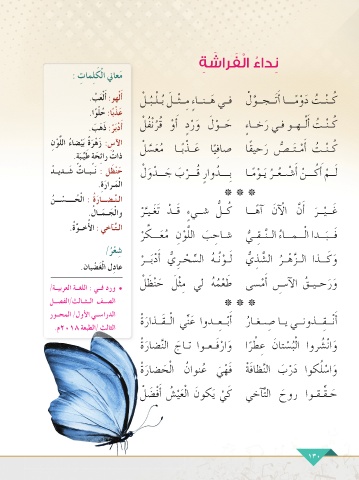 نِداءُ الْفَراشَةِ
كُنْتُ دَوْمًا أَتَجوَّلْ في هَناءٍ مِثْلَ بُلْبُلْ
كُنْتُ أَلْهو في رَخاءٍ حَوْلَ وَرْدٍ أَوْ قُرُنْفُلْ
كُنْتُ أَمْتَصُّ رَحيقًا صافِيًا عَذْبًا مُعَسَّلْ
لَمْ أَكُنْ أَشْعُرُ يَوْمًا بِدُوارٍ قُرْبَ جَدْوَلْ
* * *
غَيْرَ أَنَّ الْآنَ آهًا كُلُّ شيءٍ قَدْ تَغَيَّرْ
فَبَدا الْماءُ النَّقِيُّ شاحِبَ اللَّوْنِ مُعَكَّرْ
وَكَذا الزَّهْرُ الشَّذِيُّ لَوْنُهُ السِّحْرِيُّ أَدْبَرْ
وَرَحيقُ الآسِ أَمْسى طَعْمُهُ لي مِثْلَ حَنْظَلْ
* * *
أَنْقِدوني يا صِغارُ أَبْعِدوا عَنِّي الْقَذارَةْ
وَانْشُروا الْبُسْتانَ عِطْرًا وَارْفَعوا تاجَ النَّضارَةْ
وَاسْلُكوا دَرْبَ النَّظافَةْ فَهْيَ عُنوانُ الْحَضارَةْ
حَقِّقوا روحَ التَّآخي كَيْ يَكونَ الْعَيْشُ أَفْضَلْ
مَعاني الْكَلِماتِ :
أَلْهو: أَلْعَبْ.
عَذْبًا: حُلْوًا.
أَدْبَرْ: ذَهَبَ.
الآس: زَهْرَةٌ بَيْضاءُ اللَّوْنِ
ذاتُ رائِحَةٍ طَيِّبَةٍ.
حَنْظَل : نَباتٌ شَديدُ
الْمَرارَةِ.
النَّضارَةُ : الْحُسْنُ
والْجَمالُ.
التَّآخي : الأُخوَّةُ.
شِعْرُ/
عادِل الْغَضْبان.
• ورد في : اللغة العربية/
الصف الثالث/الفصل
الدراسي الأول/ المحور
الثالث /الطبعة ٢٠١٨م.
١٣٠